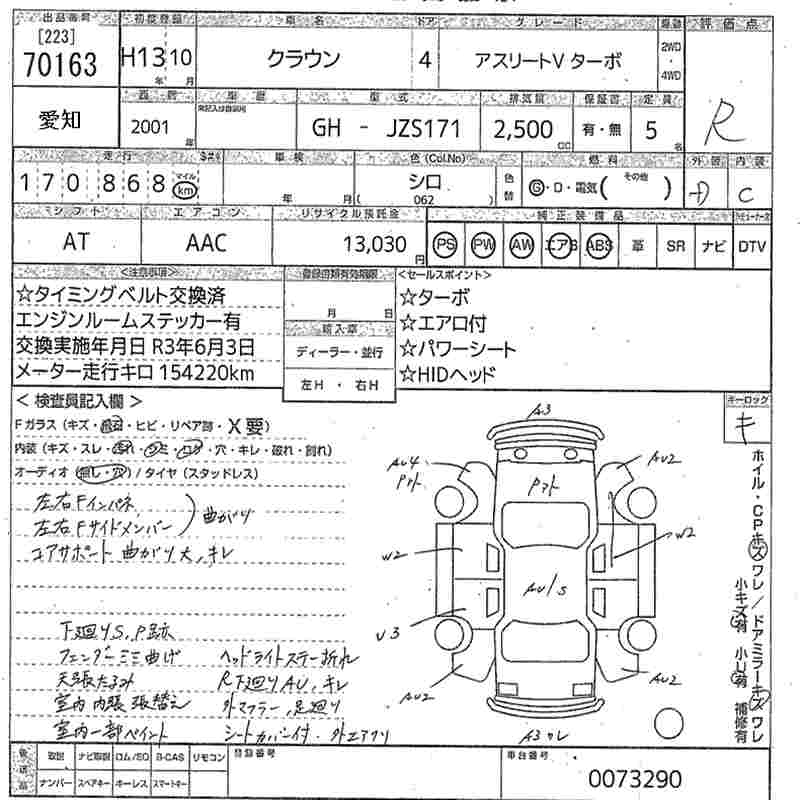 出品番号 初度登録 車名 ドア グレード 駆動 評価点
[223]
70163 H13 10 クラウン 4 アスリートV ターボ 2WD ・ 4WD R
年 月
愛知 西暦 車歴 型式 排気量 保証書 定員
2001 GH - JZS171 2,500 有・無 5
年 cc 名
走行 車検 色(Col.No) 色替 燃料 外装 内装
170868 マイル km 年 月 シロ G・D・電気( その他 ) D C
( 062 )
シフト エアコン リサイクル預託金 純正装備品
AT AAC 13,030円 PS PW AW エアB ABS 革 SR ナビ DTV
<注意事項> 登録書類有効期限 <セールスポイント>
☆タイミングベルト交換済 月 日 ☆ターボ
エンジンルームステッカー有 輸入車 ☆エアロ付
交換実施年月日 R3年6月3日 ディーラー・並行 ☆パワーシート
メーター走行キロ 154220km 左H ・ 右H ☆HIDヘッド
< 検査員記入欄 > キーロック
Fガラス (キズ・ ・ヒビ・リペア跡・X要) キ
内装 (キズ・スレ・汚れ・シミ・コゲ・穴・キレ・破れ・割れ)
オーディオ (無し・穴) / タイヤ (スタッドレス)
左右Fインパネ
左右Fサイドメンバー 曲がり
エアサポート 曲がり大、キレ
下廻りS、P跡
フェンダーミミ曲げ ヘッドライトステー折れ
天張たるみ R下廻りAU、キレ
室内 内張 張替え 外マフラー、足廻り
室内一部ペイント シートカバー付・外エアクリ
A3
AU4 AU2
Pアト Pアト
W2 W2
AU/S
U3
AU2 AU2
A3ワレ
ホイル・CPキズワレ/ドアミラーキズワレ
小キズ有 小U有 補修有
後送品 取説 ナビ取説 ロム/SD B-CAS リモコン 登録番号 車台番号
ナンバー スペアキー キーレス スマートキー 0073290